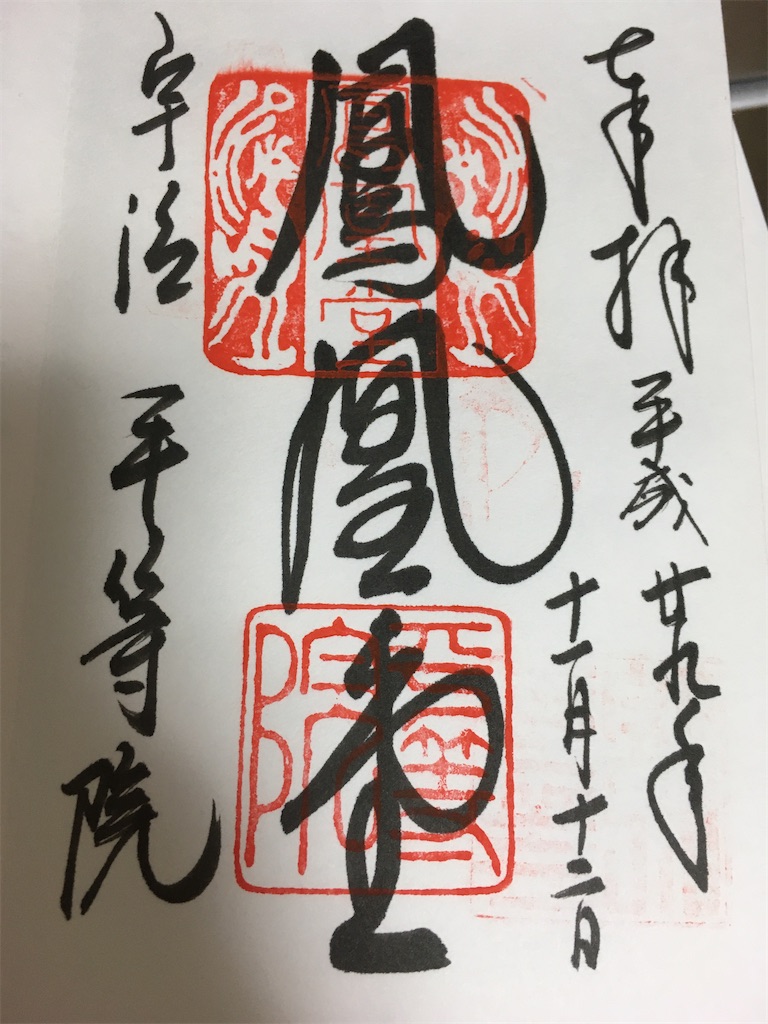 奉拝 平成廿九年
十一月十二日
鳳凰堂
宇治 平等院
鳳凰堂
平等院